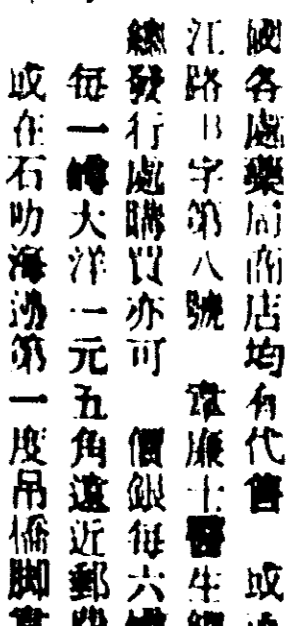 各處藥局商店均有代售 或
江路 字第八號 韋廉士醫生
總發行處購買亦可 價銀每六
每一罇大洋一元五角遠近郵
或在石叻海 第一度吊橋脚